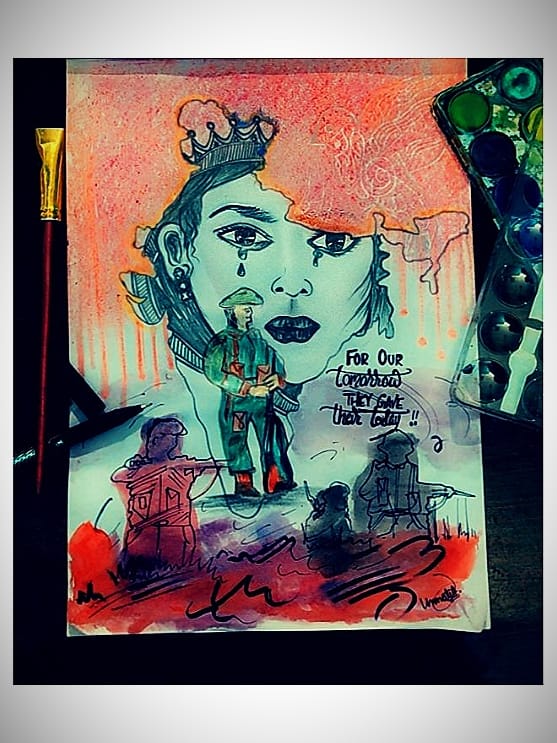 FOR OUR
tomorrow
THEY GAVE
their today !!